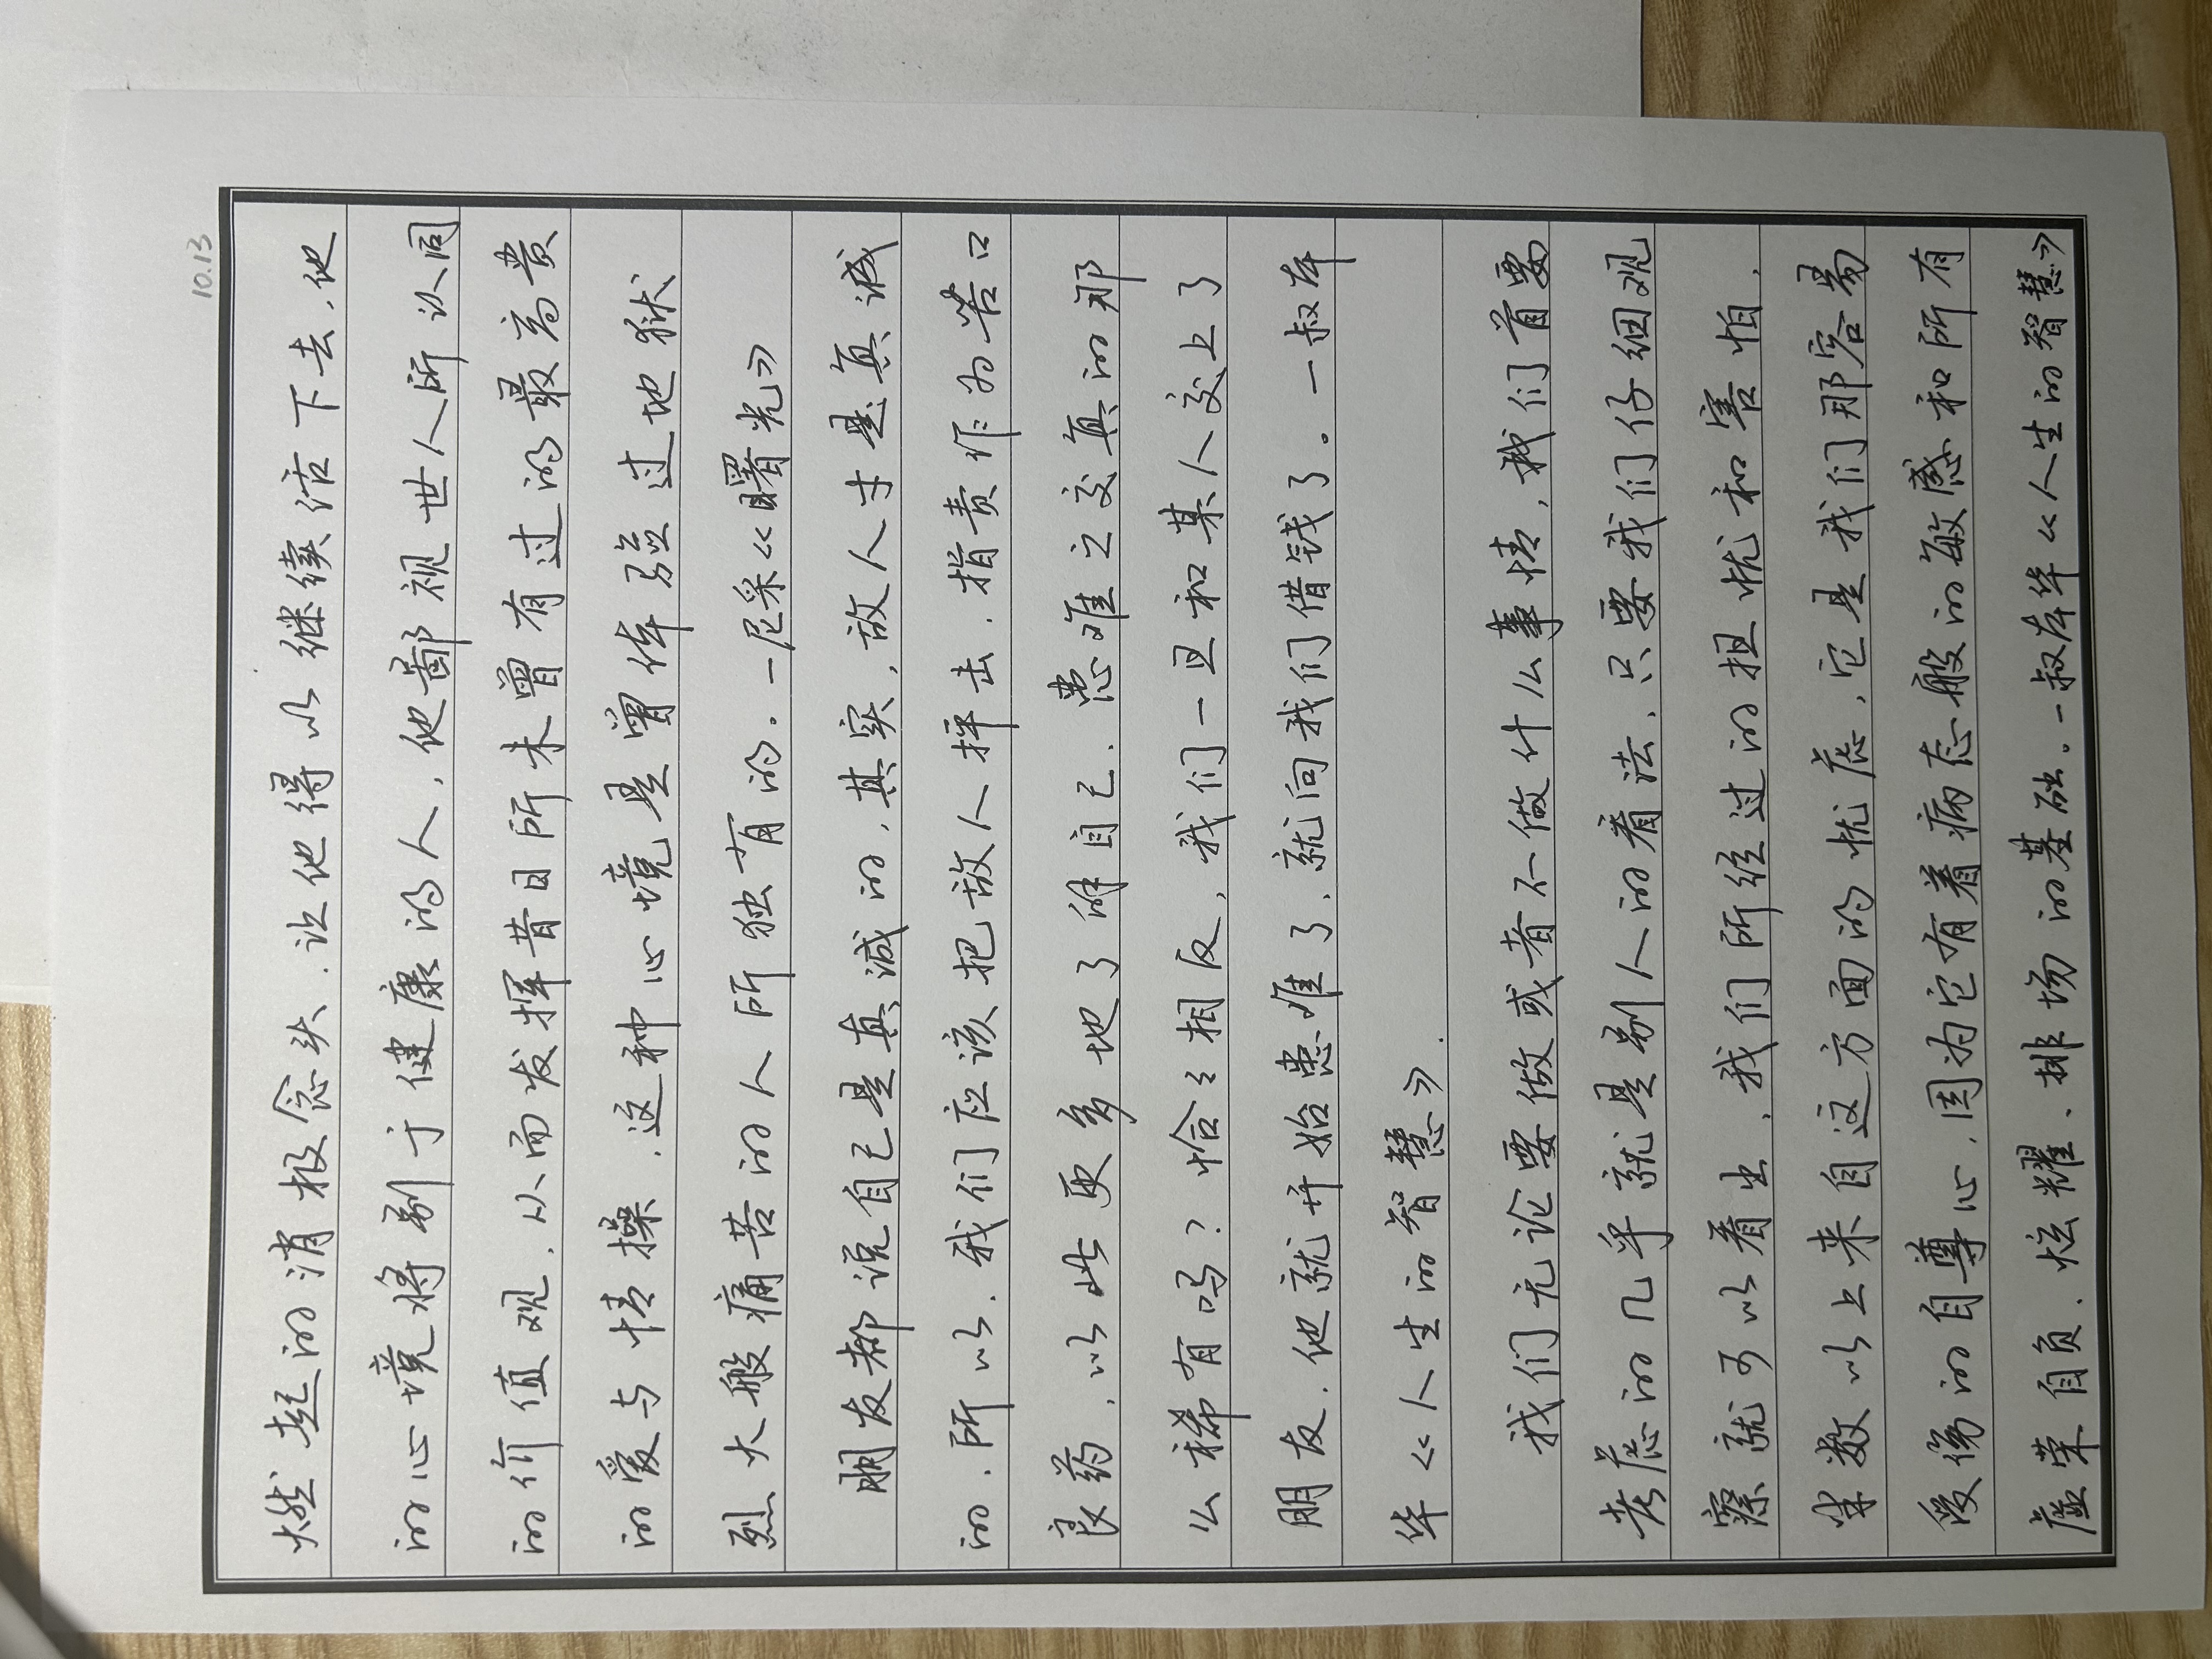 10.13
燃起的消极念头，让他得以继续活下去，他
的心境将别于健康的人，他鄙视世人所认同
的价值观，从而发挥昔日所未曾有过的最高贵
的爱与情操，这种心境是曾体验过地狱
烈火般痛苦的人所独有的。—尼采《曙光》
朋友都说自己是真诚的，其实，敌人才是真诚
的，所以，我们应该把敌人抨击、指责作为苦口
良药，以此更多地了解自己，患难之交真的那
么稀有吗？恰恰相反，我们一旦和某人交上了
朋友，他就开始患难了，就向我们借钱了。—叔本
华《人生的智慧》.
我们无论要做或者不做什么事情，我们首要
考虑的几乎就是别人的看法，只要我们仔细观
察就可以看出，我们所经过的担忧和害怕，
半数以上来自这方面的忧虑，它是我们那容易
受伤的自尊心，因为它有着病态般的敏感和所有
虚荣自负、炫耀、排场的基础。—叔本华《人生的智慧》